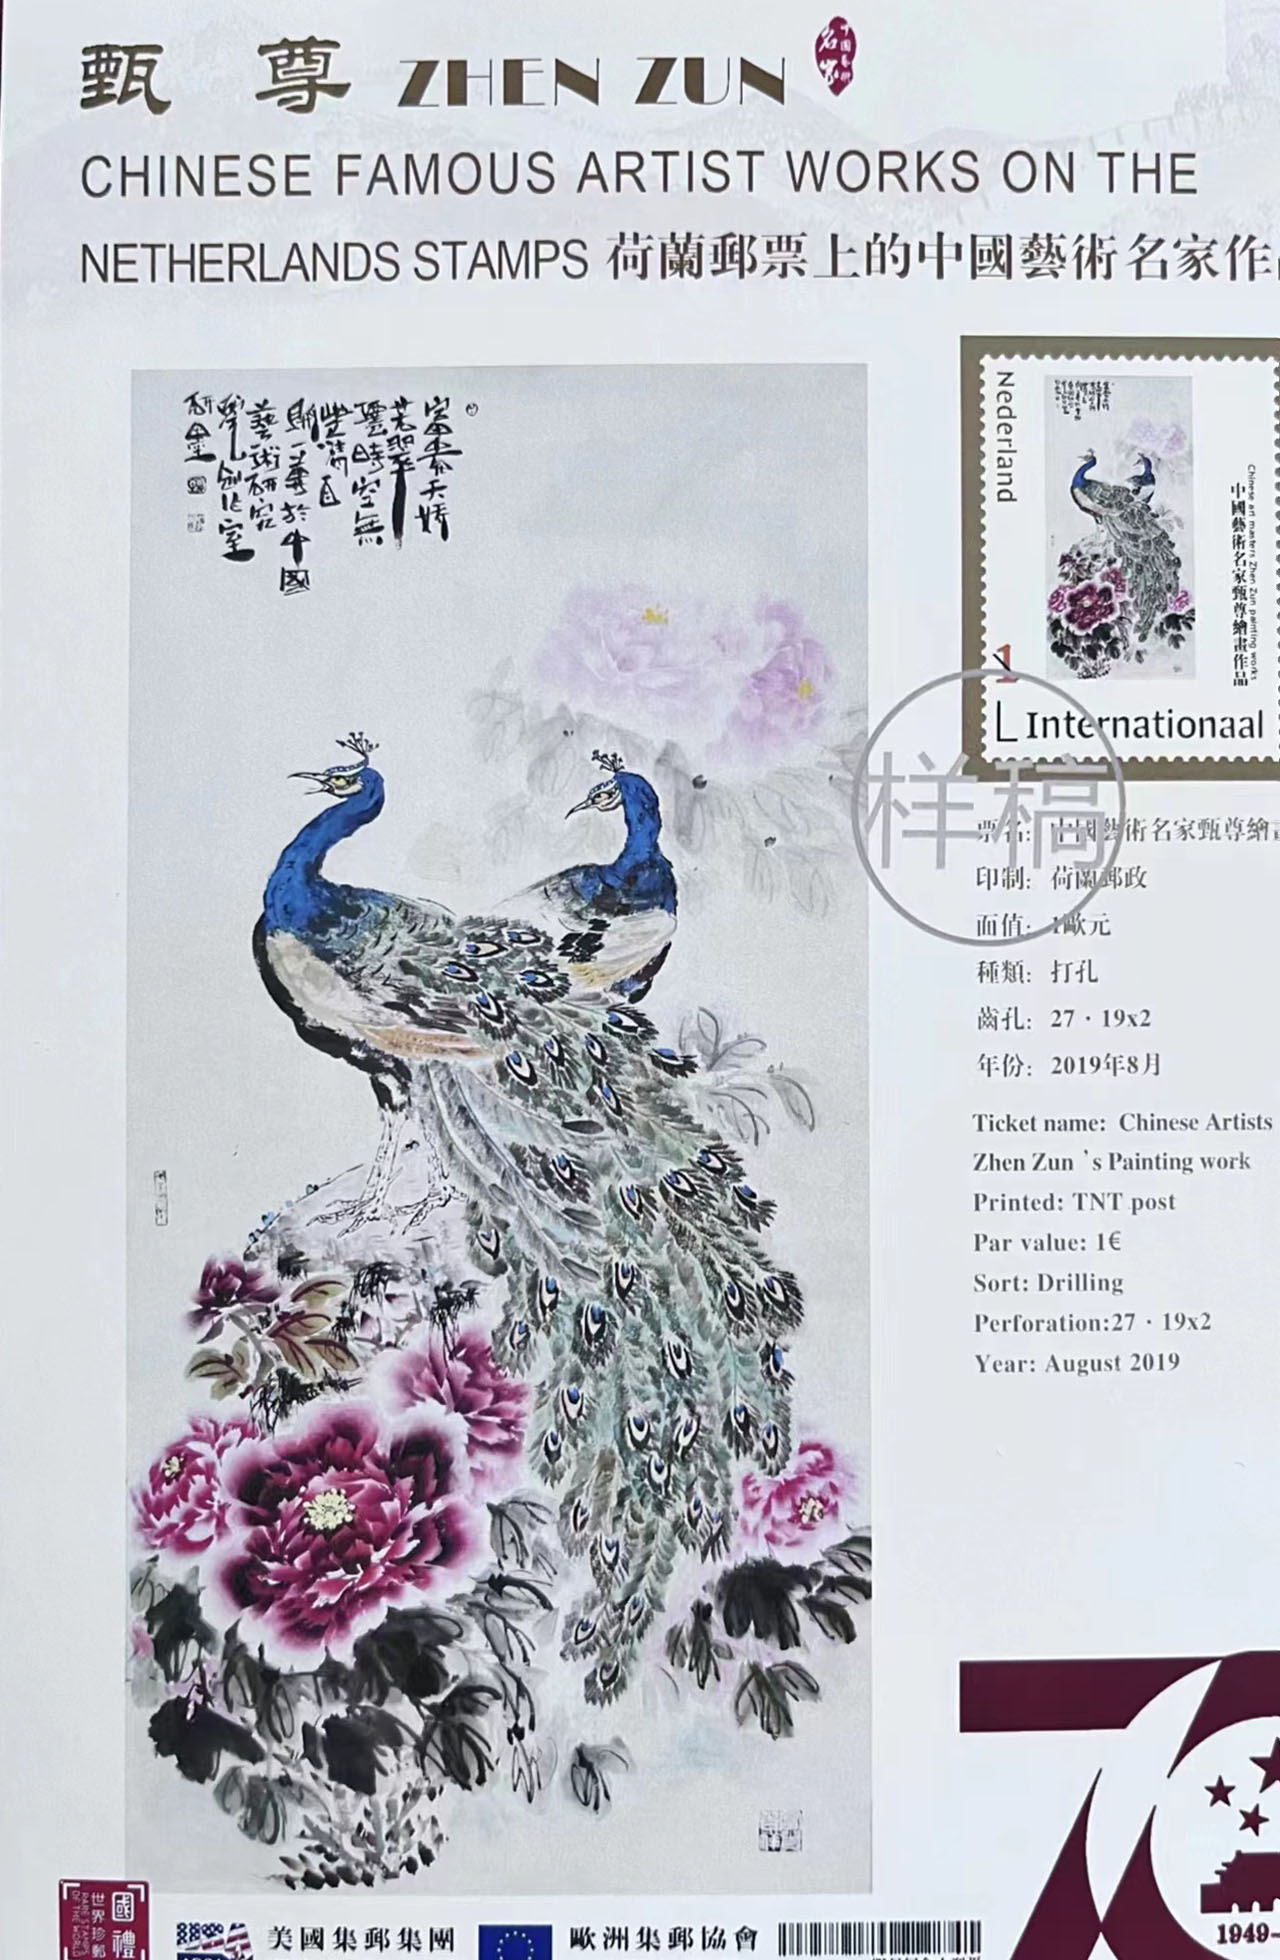 甄 尊 ZHEN ZUN 中國藝術名家
CHINESE FAMOUS ARTIST WORKS ON THE
NETHERLANDS STAMPS 荷蘭郵票上的中國藝術名家作
富貴天嬌
藝術研究
Nederland
Chinese art masters Zhen Zun painting works
中國藝術名家甄尊繪畫作品
1
Internationaal
样稿
票名：中國藝術名家甄尊繪
印制：荷蘭郵政
面值：1歐元
種類：打孔
齒孔：27·19x2
年份：2019年8月
Ticket name: Chinese Artists
Zhen Zun ’s Painting work
Printed: TNT post
Par value: 1€
Sort: Drilling
Perforation:27·19x2
Year: August 2019
70
1949-
國禮
世界珍郵
RARE STAMPS OF THE WORLD
美國集郵集團
歐洲集郵協會